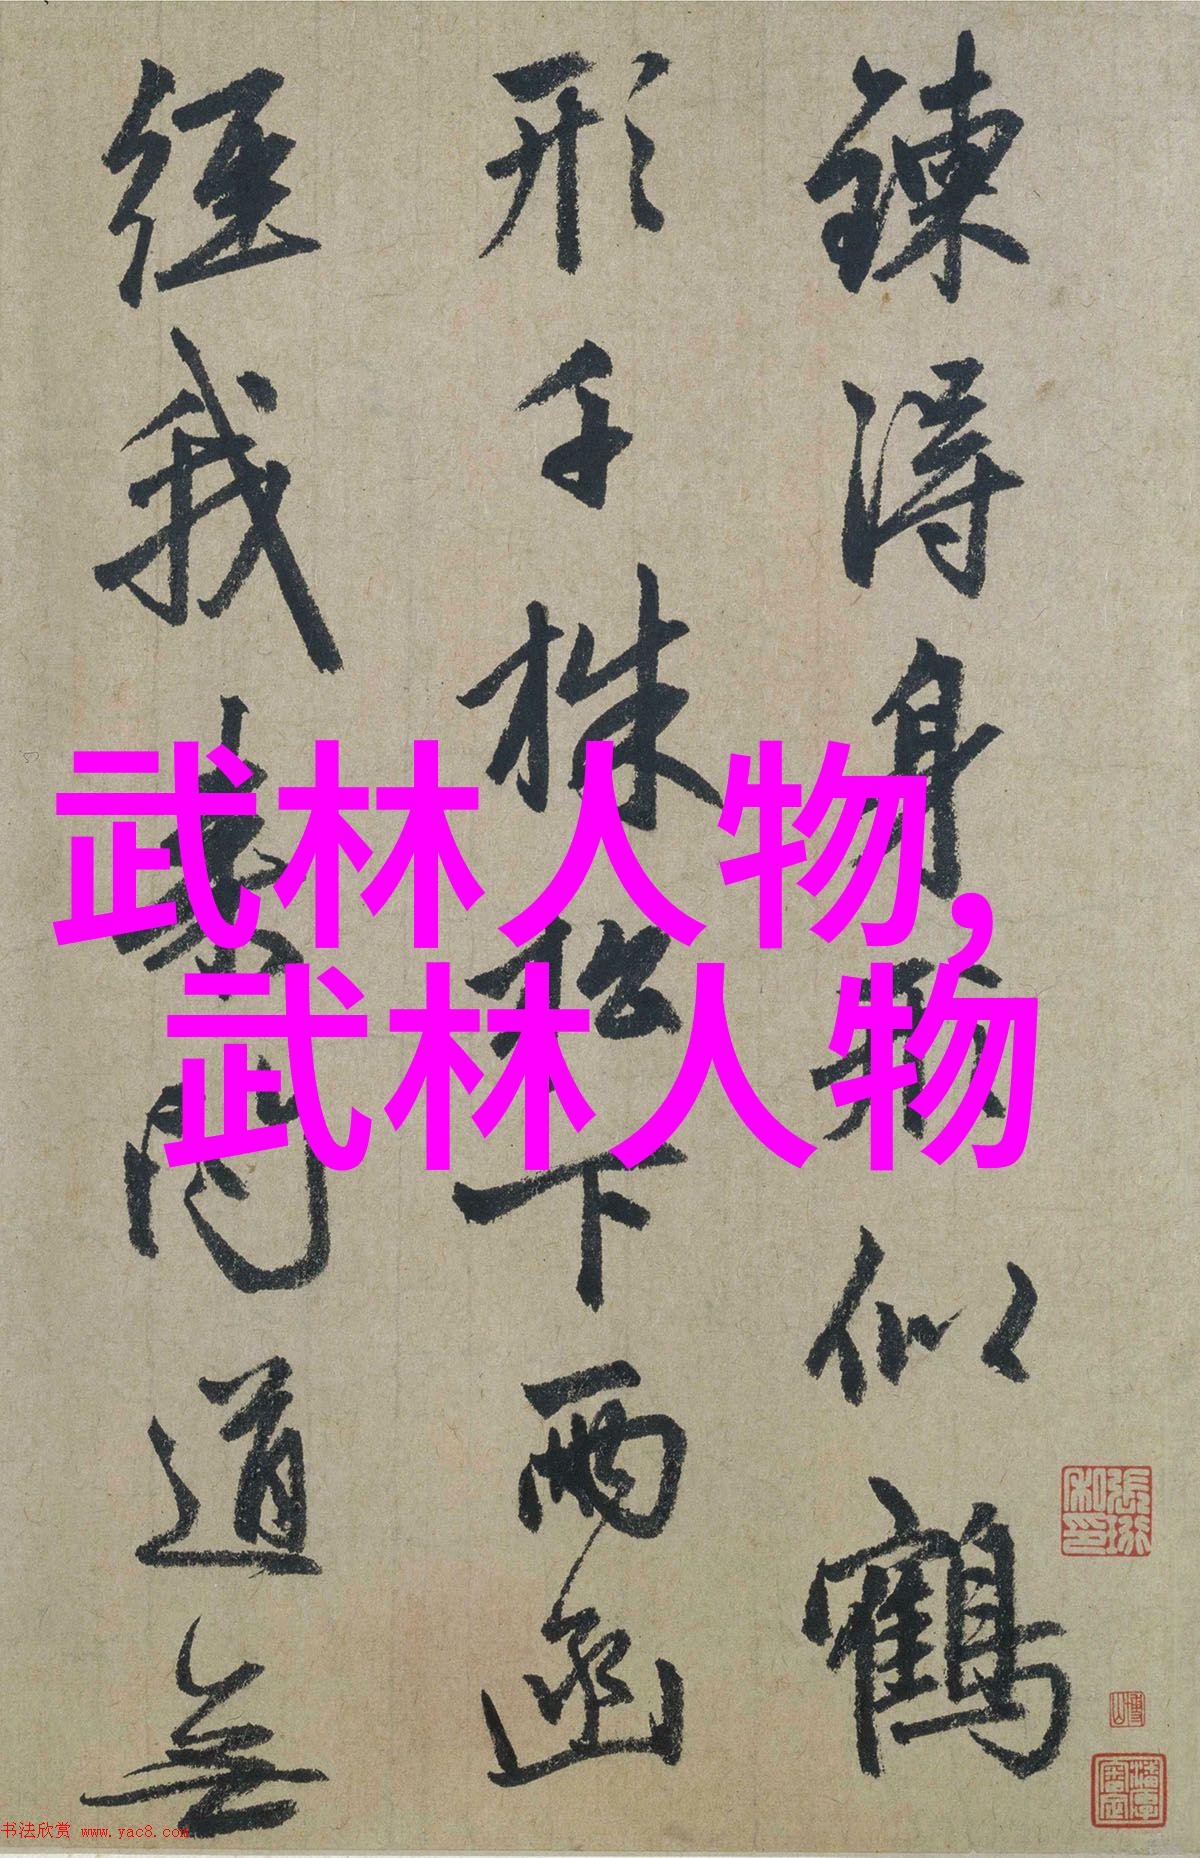 鍊得身似鶴
形千株松下兩函
經我來問道無
武林人物,
武林人物
书法欣赏 www.yac8.com